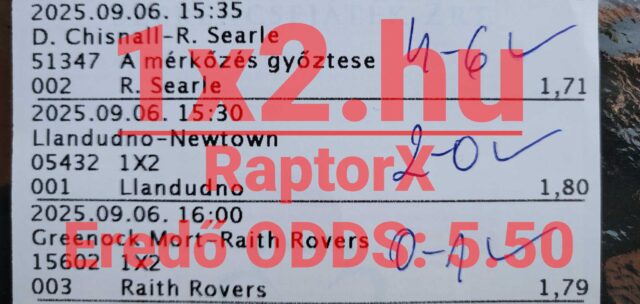 2025.09.06. 15:35
D. Chisnall-R. Searle
51347 A mérkőzés győztese 4-6 ✓
002 R. Searle 1,71
2025.09.06. 15:30
Llandudno-Newtown
05432 1X2 2-0 ✓
001 Llandudno 1,80
2025.09.06. 16:00
Greenock Mort-Raith Rovers 0-1 ✓
15602 1X2
003 Raith Rovers 1,79
1x2.hu
RaptorX
Eredő ODDS: 5.50